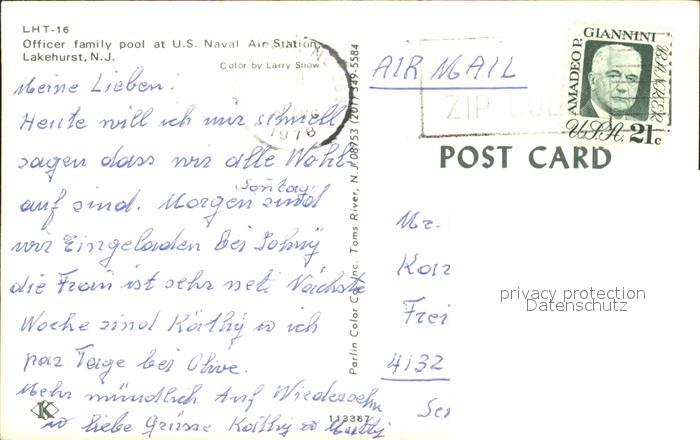 LHT-16
Officer family pool at U.S. Naval Air Station,
Lakehurst, N.J.
Color by Larry Snow
Meine Lieben!
Heute will ich nur schnell
sagen dass wir alle Wohl
auf sind. Morgen sind
Sontag
wir Eingeladen bei Johny
die Frau ist sehr nett Nächste
Woche sind Käthy u ich
par Tage bei Olive.
Mehr mündlich Auf Wiedersehn
u liebe Grüsse Käthy u
K
113367
Parlin Color Co., Inc. Toms River, N.J. 08753 (201) 349-5584
1978
AIR MAIL
ZIP CODE
AMADEO P. GIANNINI
BANKER
U.S.A. 21c
POST CARD
Mr.
Kar
Frei
4132
privacy protection
Datenschutz